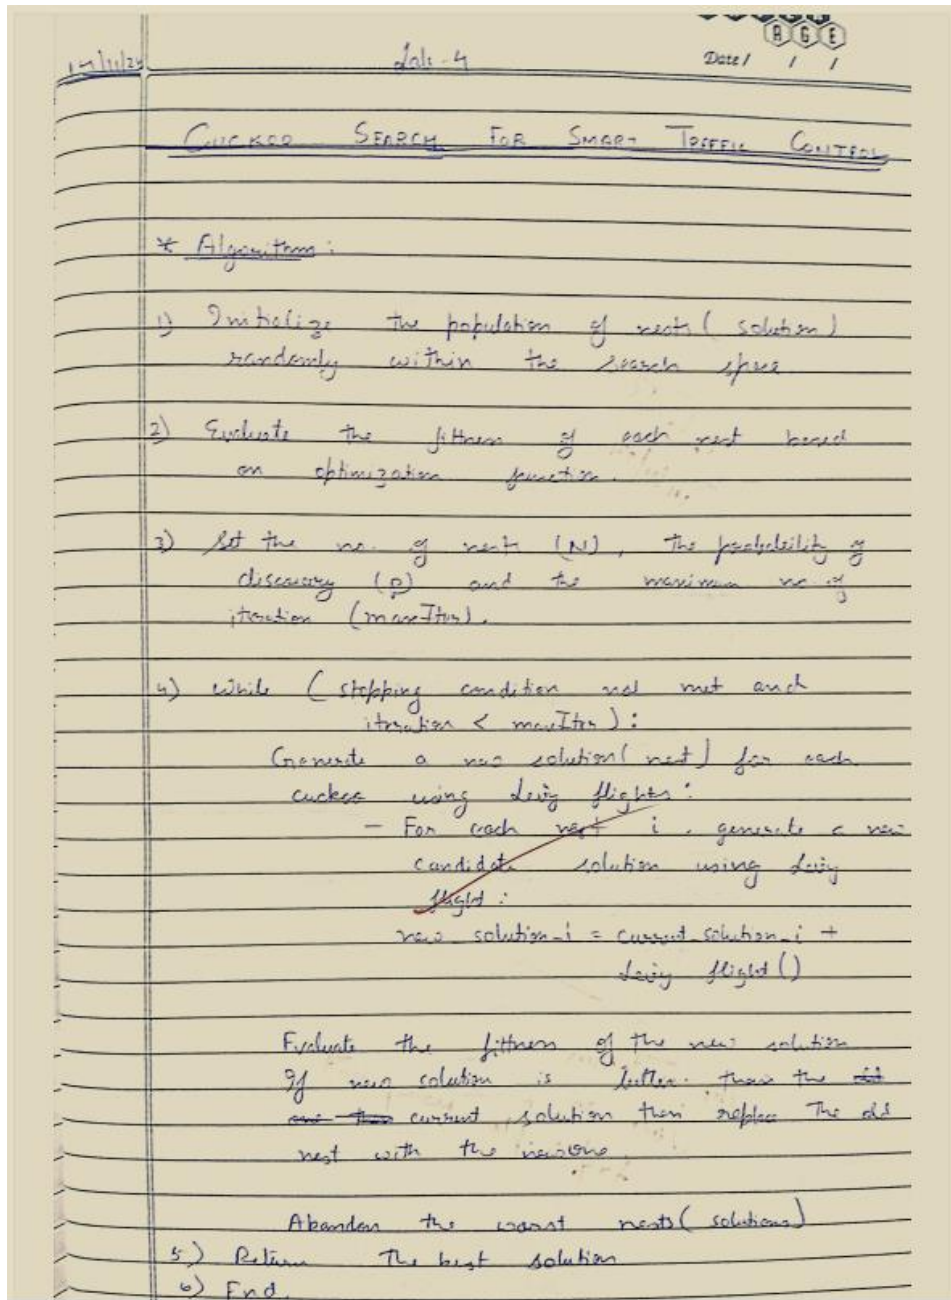 AGE
Date / / /
Lab - 4
CUCKOO SEARCH FOR SMART TRAFFIC CONTROL
* Algorithm :
1) Initialize the population of nests ( solution )
randomly within the search space
2) Evaluate the fittness of each nest based
on optimization function.
3) Set the no. of nests (N), the probability of
discovery (p) and the maximum no. of
iteration (maxIter).
4) While ( stopping condition not met and
iteration < maxIter ) :
Generate a new solution( nest ) for each
cuckoo using Levy flights :
- For each nest i . generate a new
candidate solution using Levy
flight :
new solution_i = current_solution_i +
Levy flight ()
Evaluate the fittness of the new solution
If new solution is better than the old
one then current solution then replace the old
nest with the newone
Abandon the worst nests( solutions )
5) Return The best solution
6) End.